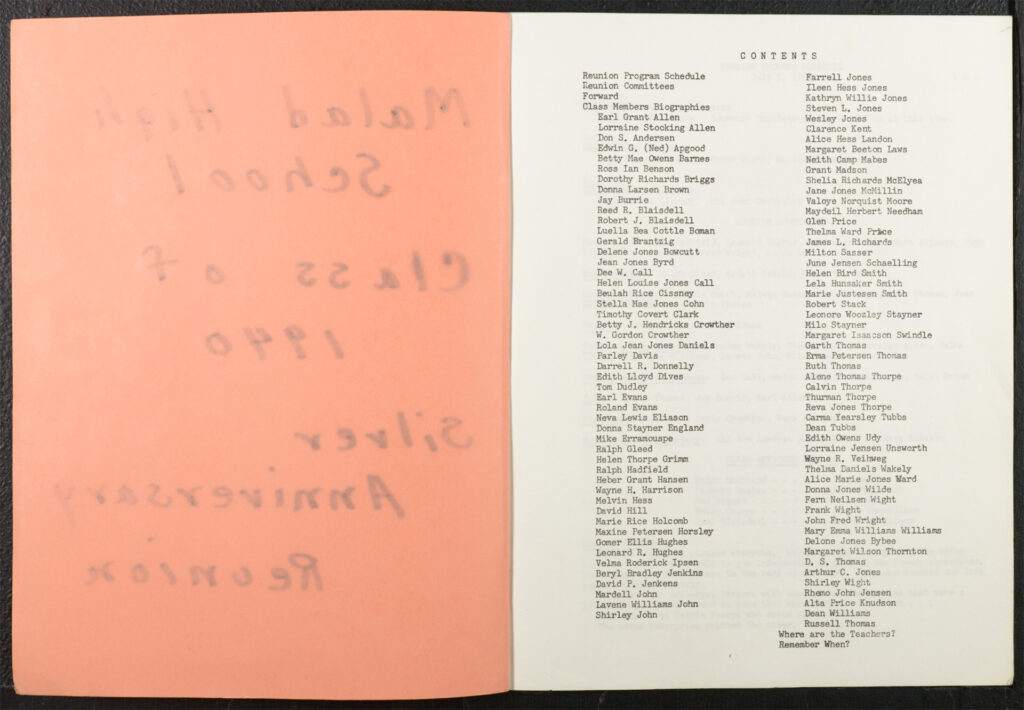 Malad High
School
Class of
1940
Silver
Anniversary
Reunion
CONTENTS
Reunion Program Schedule
Reunion Committees
Forward
Class Members Biographies
Earl Grant Allen
Lorraine Stocking Allen
Don S. Andersen
Edwin G. (Ned) Apgood
Betty Mae Owens Barnes
Ross Ian Benson
Dorothy Richards Briggs
Donna Larsen Brown
Jay Burrie
Reed R. Blaisdell
Robert J. Blaisdell
Luella Bea Cottle Boman
Gerald Brantzig
Delene Jones Bowcutt
Jean Jones Byrd
Dee W. Call
Helen Louise Jones Call
Beulah Rice Cissney
Stella Mae Jones Cohn
Timothy Covert Clark
Betty J. Hendricks Crowther
W. Gordon Crowther
Lola Jean Jones Daniels
Parley Davis
Darrell R. Donnelly
Edith Lloyd Dives
Tom Dudley
Earl Evans
Roland Evans
Neva Lewis Eliason
Donna Stayner England
Mike Erramouspe
Ralph Gleed
Helen Thorpe Grimm
Ralph Hadfield
Heber Grant Hansen
Wayne H. Harrison
Melvin Hess
David Hill
Marie Rice Holcomb
Maxine Petersen Horsley
Gomer Ellis Hughes
Leonard R. Hughes
Velma Roderick Ipsen
Beryl Bradley Jenkins
David P. Jenkens
Mardell John
Lavene Williams John
Shirley John
Farrell Jones
Ileen Hess Jones
Kathryn Willie Jones
Steven L. Jones
Wesley Jones
Clarence Kent
Alice Hess Landon
Margaret Beeton Laws
Neith Camp Mabes
Grant Madson
Shelia Richards McElyea
Jane Jones McMillin
Valoye Norquist Moore
Maydeil Herbert Needham
Glen Price
Thelma Ward Price
James L. Richards
Milton Sasser
June Jensen Schaelling
Helen Bird Smith
Lela Hunsaker Smith
Marie Justesen Smith
Robert Stack
Leonore Woozley Stayner
Milo Stayner
Margaret Isaacson Swindle
Garth Thomas
Erma Petersen Thomas
Ruth Thomas
Alene Thomas Thorpe
Calvin Thorpe
Thurman Thorpe
Reva Jones Thorpe
Carma Yearsley Tubbs
Dean Tubbs
Edith Owens Udy
Lorraine Jensen Unsworth
Wayne R. Veihweg
Thelma Daniels Wakely
Alice Marie Jones Ward
Donna Jones Wilde
Fern Neilsen Wight
Frank Wight
John Fred Wright
Mary Emma Williams Williams
Delone Jones Bybee
Margaret Wilson Thornton
D. S. Thomas
Arthur C. Jones
Shirley Wight
Rhemo John Jensen
Alta Price Knudson
Dean Williams
Russell Thomas
Where are the Teachers?
Remember When?